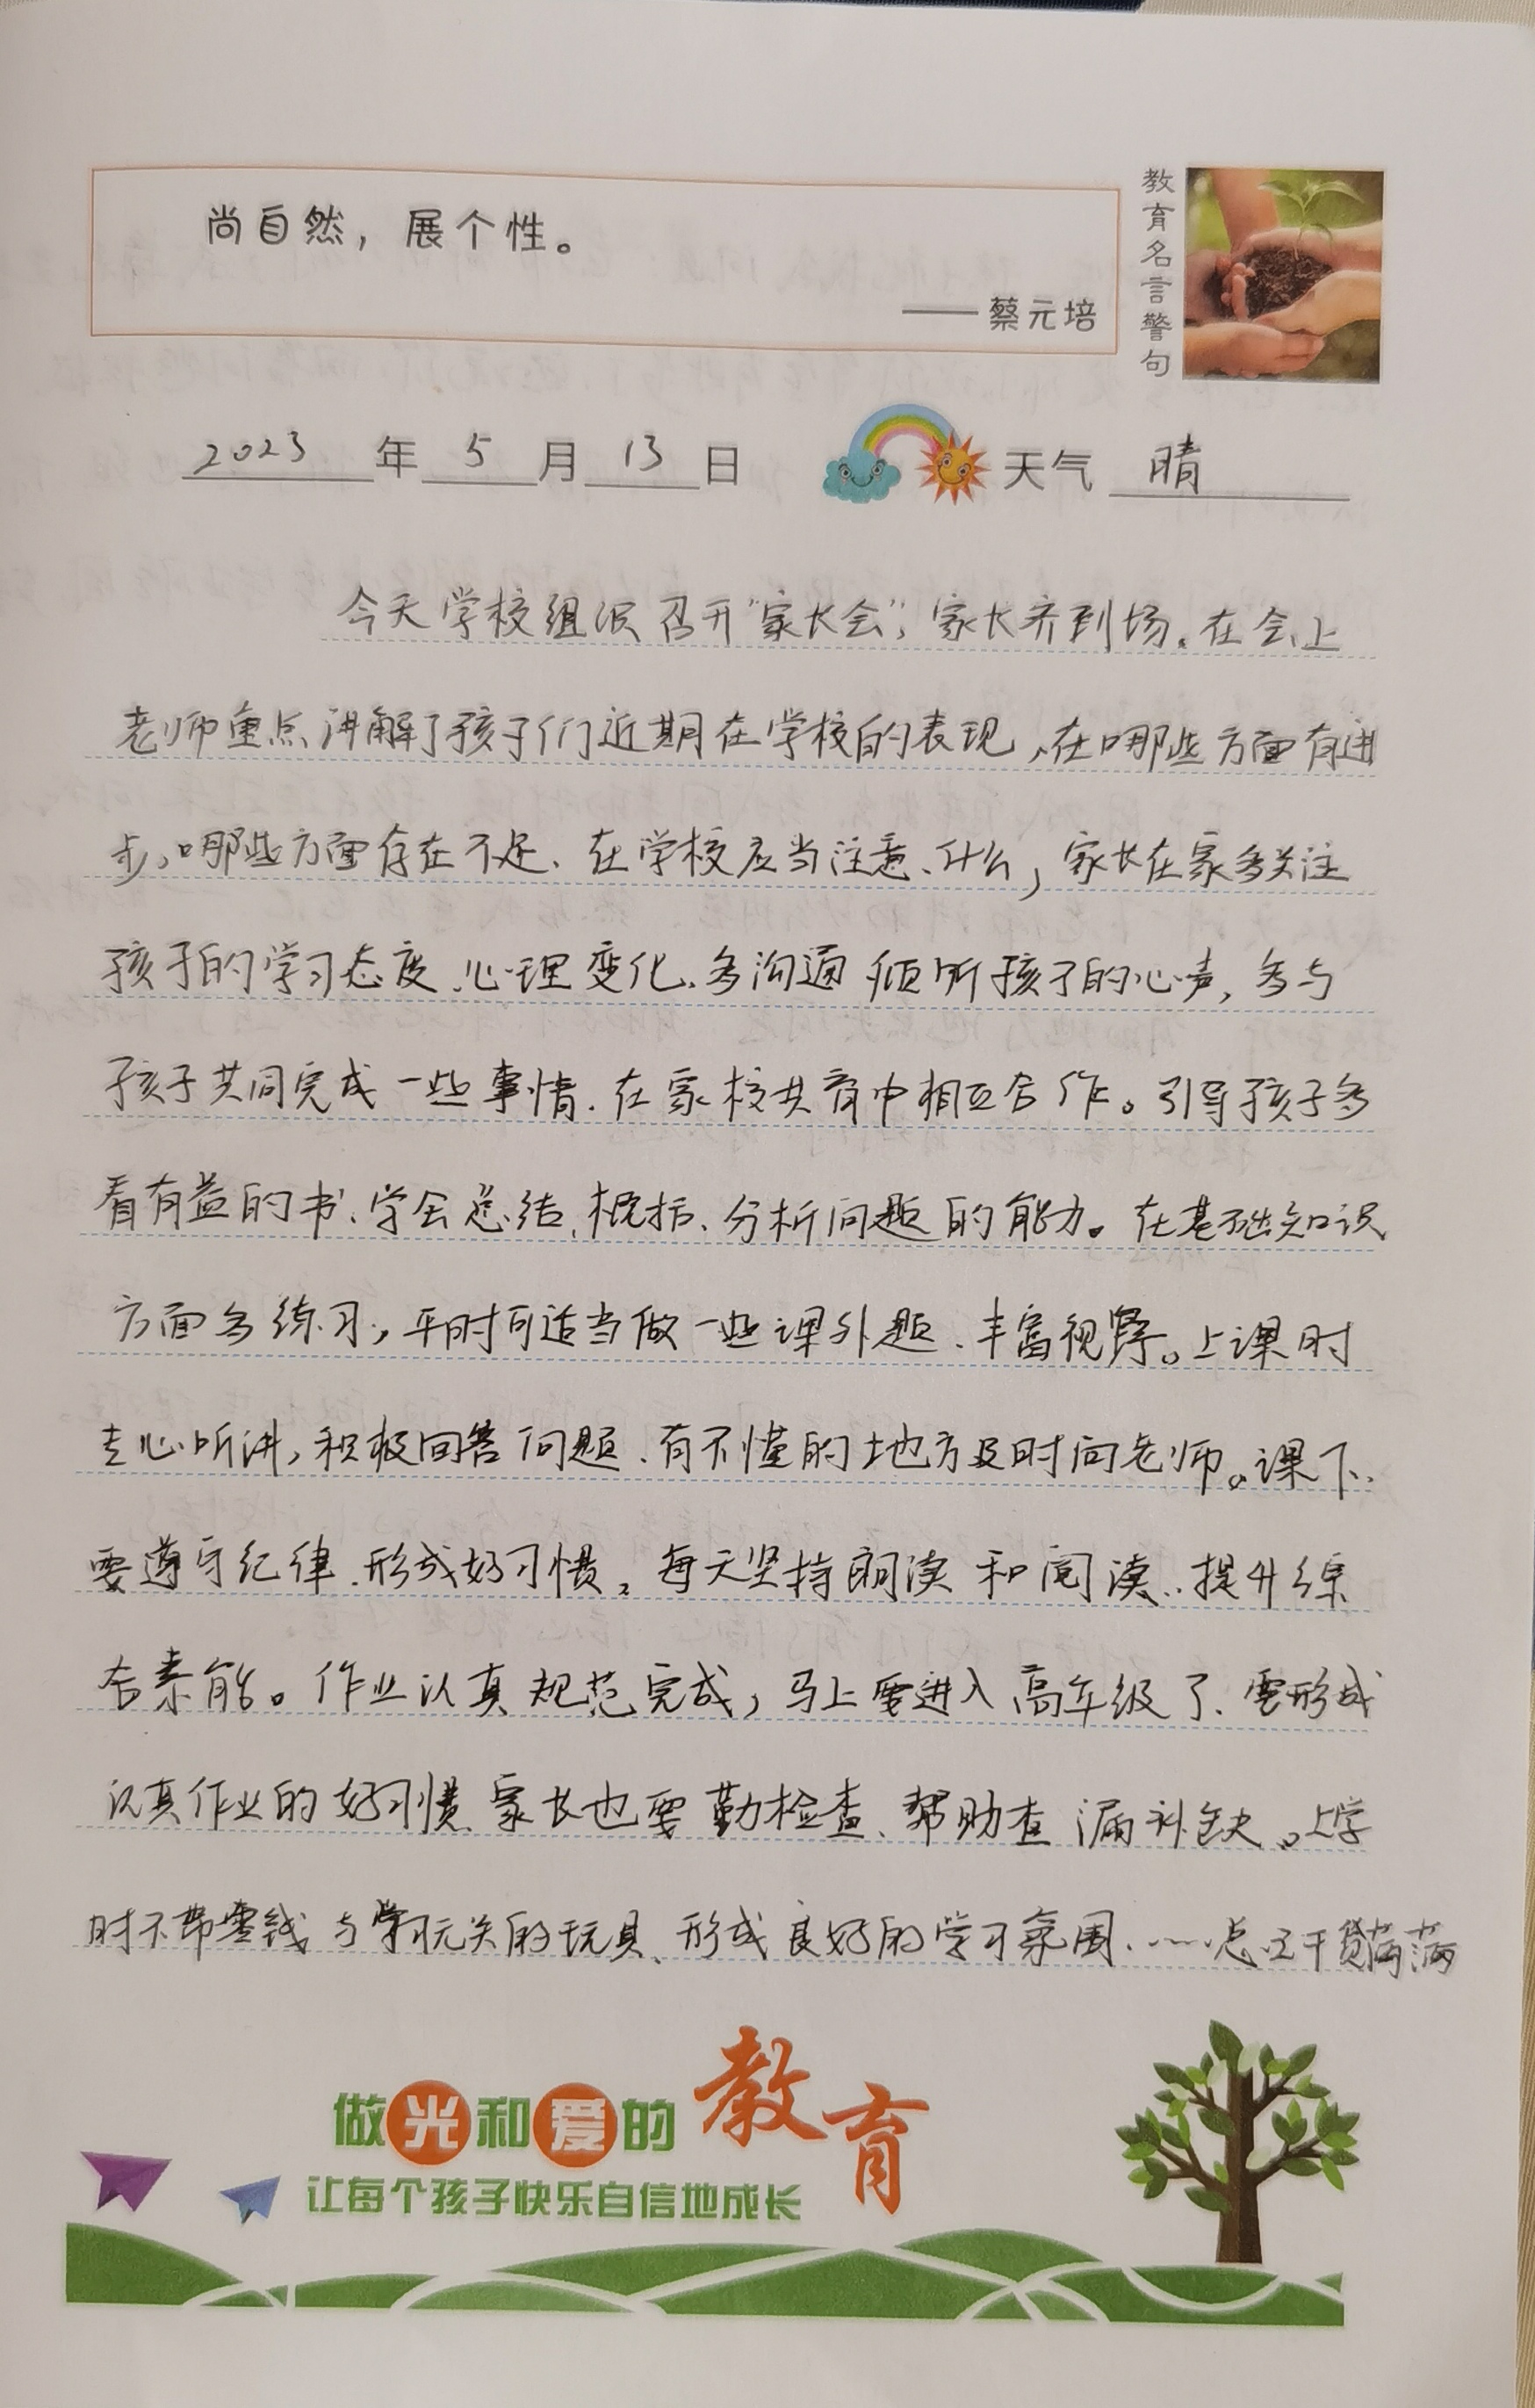 尚自然，展个性。
——蔡元培
教育名言警句
2023年5月13日 天气 晴
今天学校组织召开"家长会"，家长齐到场。在会上
老师重点讲解了孩子们近期在学校的表现，在哪些方面有进
步，哪些方面存在不足、在学校应当注意、什么，家长在家多关注
孩子的学习态度、心理变化、多沟通倾听孩子的心声，多与
孩子共同完成一些事情.在家校共育中相互合作。引导孩子多
看有益的书、学会总结、概括、分析问题的能力。在基础知识
方面多练习，平时可适当做一些课外题、丰富视野。上课时
专心听讲，积极回答问题、有不懂的地方及时问老师。课下、
要遵守纪律.形成好习惯。每天坚持朗读和阅读..提升综
合素能。作业认真规范完成，马上要进入高年级了、要形成
认真作业的好习惯、家长也要勤检查、帮助查漏补缺。上学
时不带零钱与学习无关的玩具、形成良好的学习氛围.……总之干货满满
做光和爱的教育
让每个孩子快乐自信地成长